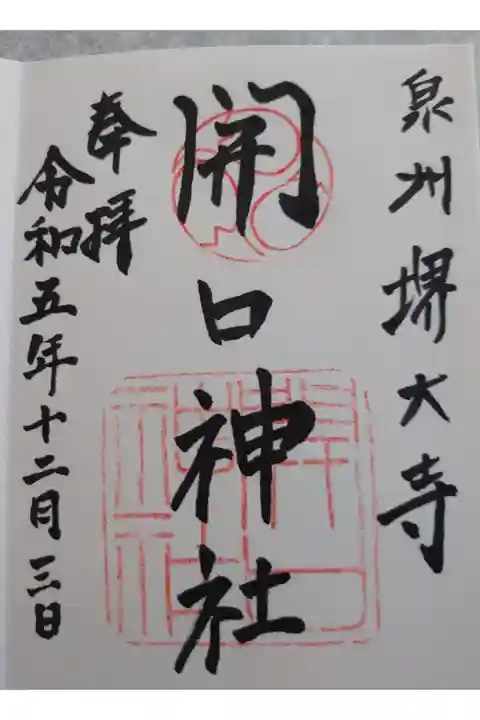 泉州堺大寺
開口神社
奉拝
令和五年十二月三日